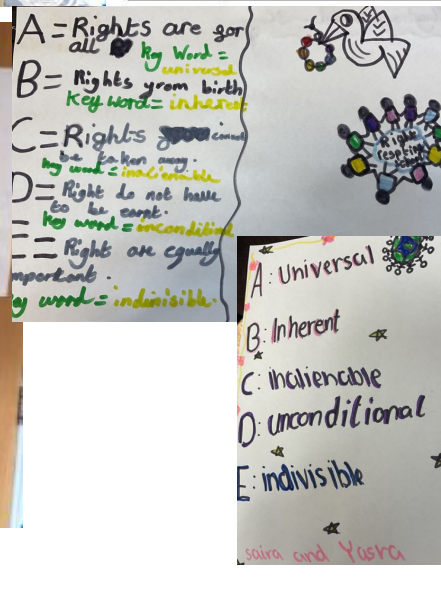 A = Rights are for
all
Key Word =
universal
B = Rights from birth
Key word = inherent
C = Rights cannot
be taken away.
key word = inalienable
D = Right do not have
to be earnt.
Key word = inconditional
E = Right are equally
mportant.
ey word = indinisible.
Right
respecting
A: Universal
B: Inherent
C: inalienable
D: unconditional
E: indivisible
saira and Yasra